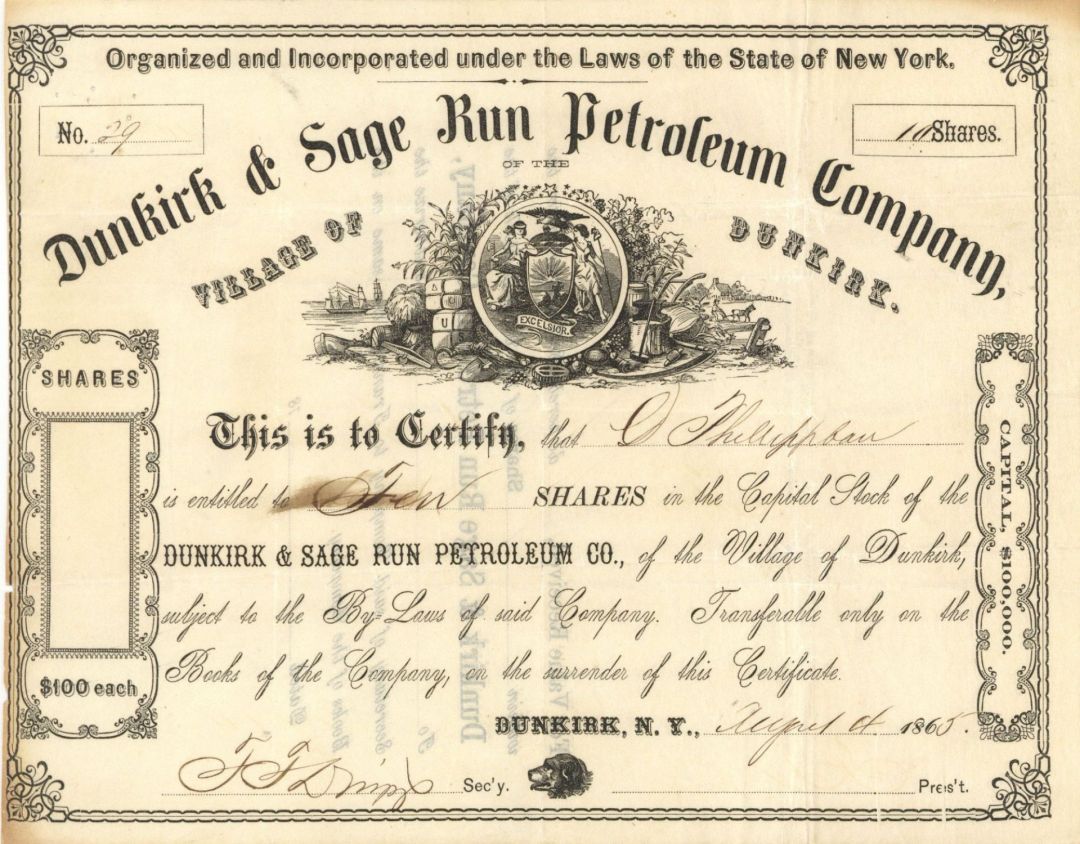 Organized and Incorporated under the Laws of the State of New York.
No. 29
10 Shares.
Dunkirk & Sage Run Petroleum Company,
OF THE
VILLAGE OF DUNKIRK.
EXCELSIOR.
SHARES
$100 each
CAPITAL, $100,000.
This is to Certify, that D
is entitled to Ten SHARES in the Capital Stock of the
DUNKIRK & SAGE RUN PETROLEUM CO., of the Village of Dunkirk,
subject to the By-Laws of said Company. Transferable only on the
Books of the Company, on the surrender of this Certificate.
DUNKIRK, N. Y., August 4 1865.
Sec'y.
Pres't.